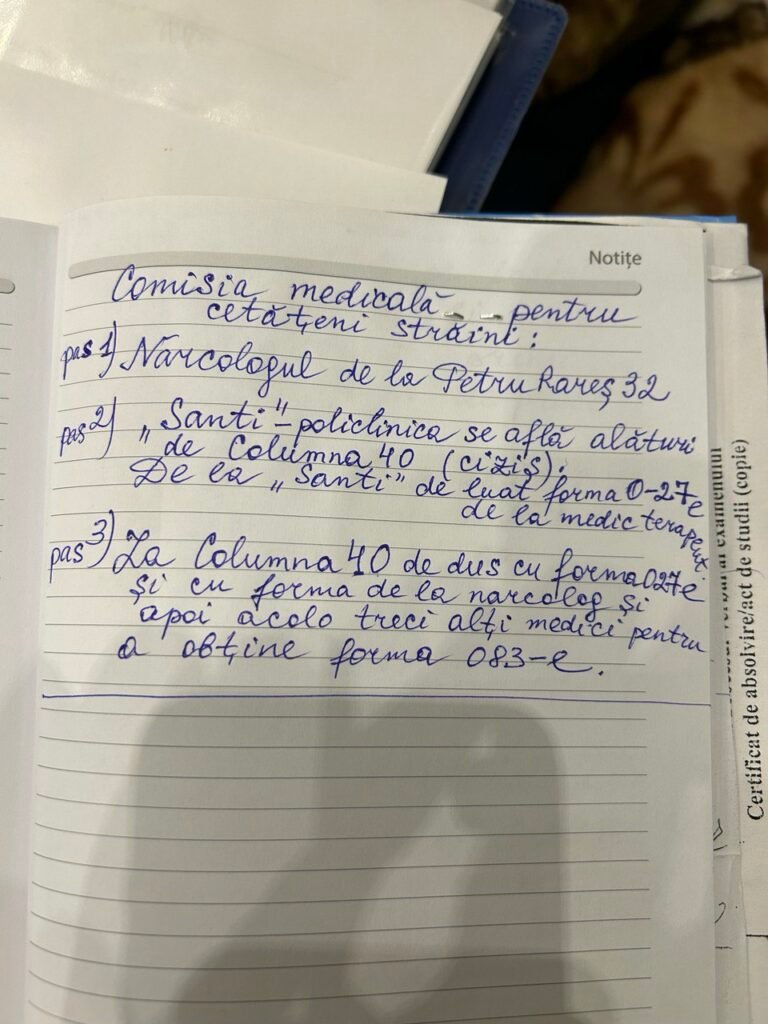 Notițe
Comisia medicală pentru
cetățeni străini:
pas 1) Narcologul de la Petru Rareș 32
pas 2) „Santi" - policlinica se află alături
de Columna 40 (cizis).
De la „Santi" de luat forma 0-27e
de la medic terapeut.
pas 3) La Columna 40 de dus cu forma 027e
și cu forma de la narcolog și
apoi acolo treci alți medici pentru
a obține forma 083-e.
Certificat de absolvire/act de studii (copie)